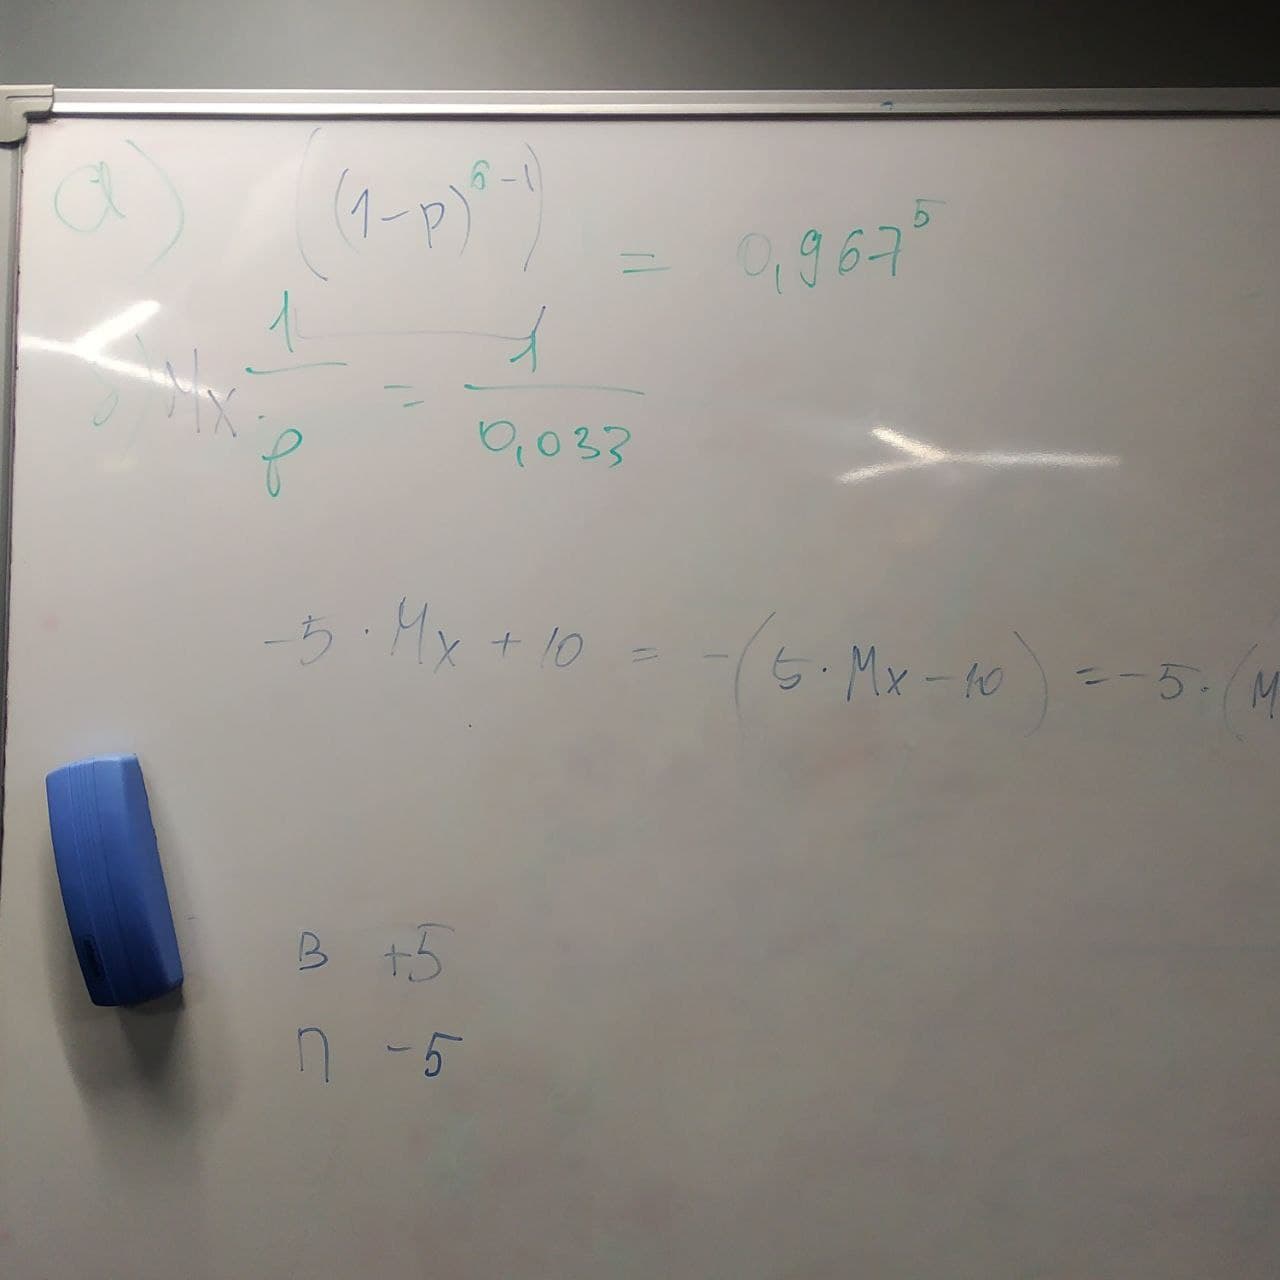 а) ((1-p)^{6-1}) = 0,967^5
б) Mx \frac{1}{p} = \frac{1}{0,033}
-5 · Mx + 10 = -(5 · Mx - 10) = -5 · (M
В +5
П -5